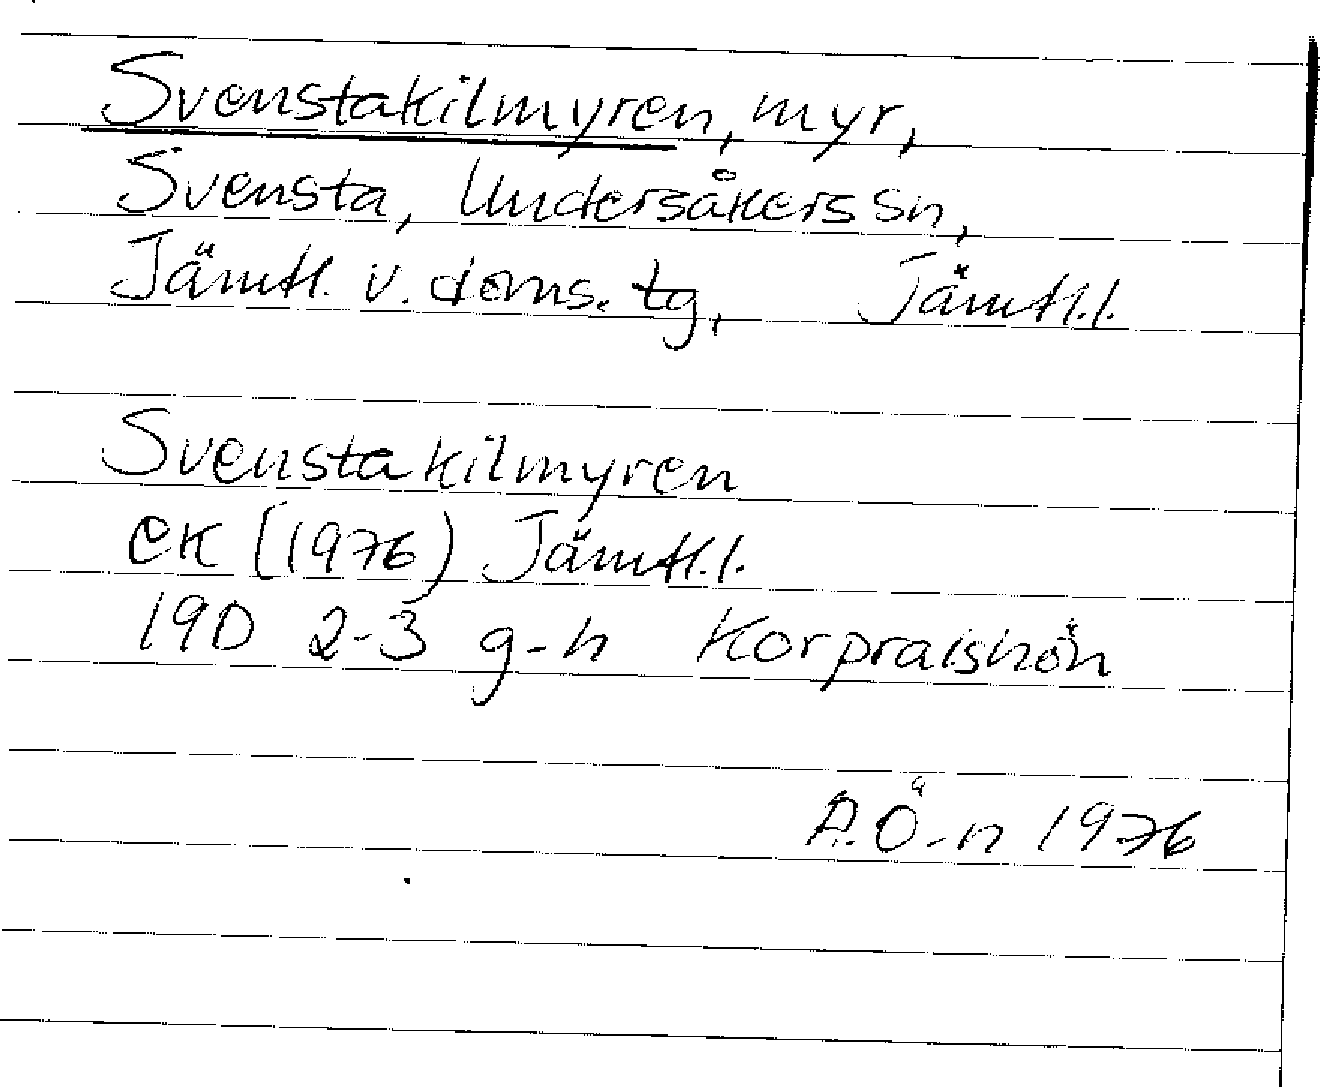 Svenstakilmyren, myr,
Svensta, Undersåkers sn,
Jämtl. v. doms. tg, Jämtl.l.
Svenstakilmyren
eK (1976) Jämtl.l.
19D 2-3 g-h Korpraishön
A.Ö-n 1976